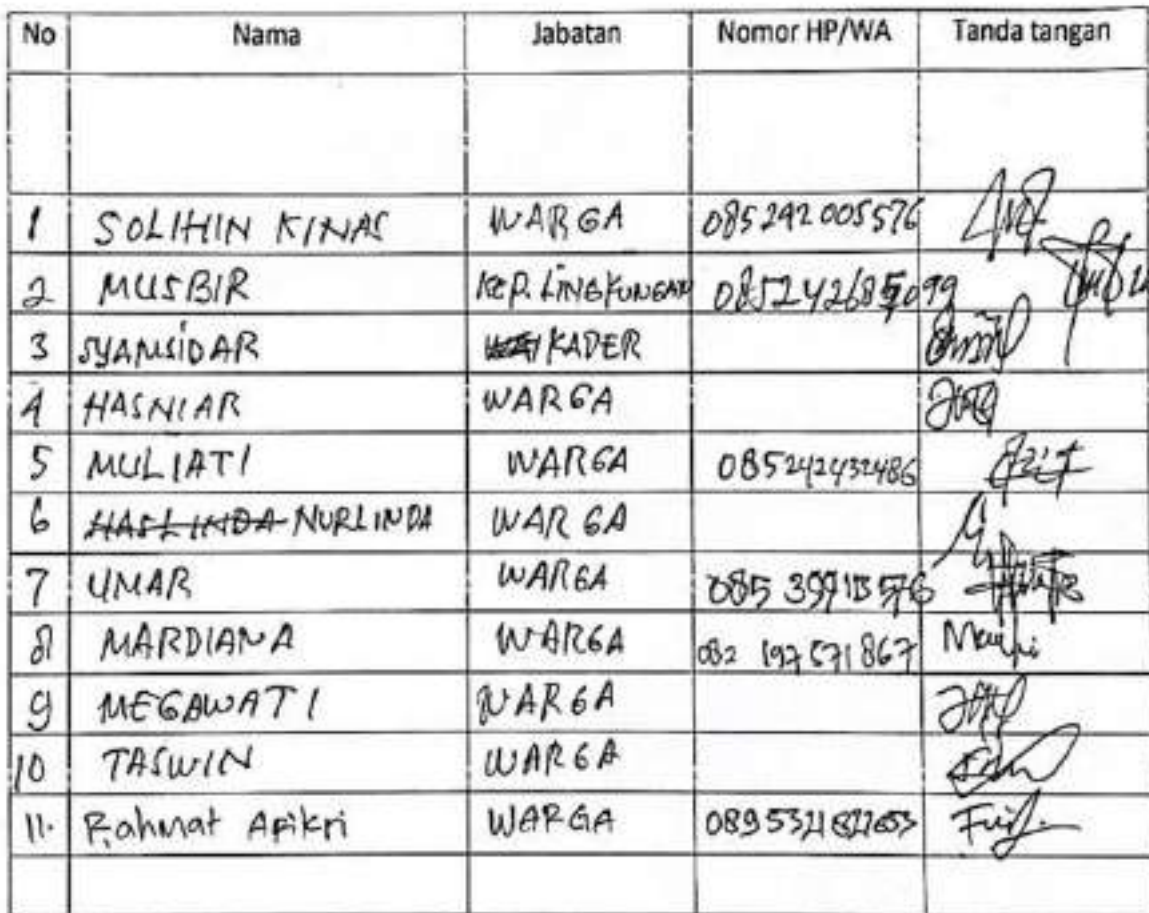 No Nama Jabatan Nomor HP/WA Tanda tangan
1 SOLIHIN KINAS WARGA 085292005576
2 MUSBIR KEP. LINGKUNGAN
3 SYAMSIDAR KADER
4 HASNIAR WARGA
5 MULIATI WARGA 085242432486
6 HASLINDA NURLINDA WARGA
7 UMAR WARGA
8 MARDIANA WARGA 082 197 571 867
9 MEGAWATI WARGA
10 TASWIN WARGA
11. Rahmat Apikri WARGA